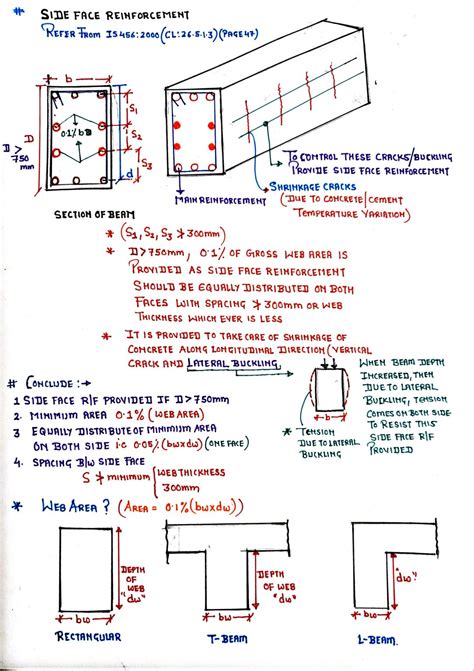 # SIDE FACE REINFORCEMENT
REFER FROM IS 456:2000 (CL:26.5.1.3) (PAGE 47)
b
D > 750 mm
D
0.1% bD
S1
S2
S3
d
SECTION OF BEAM
MAIN REINFORCEMENT
TO CONTROL THESE CRACKS/BUCKLING
PROVIDE SIDE FACE REINFORCEMENT
SHRINKAGE CRACKS
(DUE TO CONCRETE/CEMENT
TEMPERATURE VARIATION)
* (S1, S2, S3 ≯ 300mm)
* D>750mm, 0.1% OF GROSS WEB AREA IS
PROVIDED AS SIDE FACE REINFORCEMENT
SHOULD BE EQUALLY DISTRIBUTED ON BOTH
FACES WITH SPACING ≯ 300mm OR WEB
THICKNESS WHICH EVER IS LESS
* IT IS PROVIDED TO TAKE CARE OF SHRINKAGE OF
CONCRETE ALONG LONGITUDINAL DIRECTION (VERTICAL
CRACK AND LATERAL BUCKLING,
WHEN BEAM DEPTH
INCREASED, THEN
DUE TO LATERAL
BUCKLING, TENSION
COMES ON BOTH SIDE
TO RESIST THIS
SIDE FACE R/F
PROVIDED
b
* TENSION
DUE TO LATERAL
BUCKLING
# CONCLUDE :→
1 SIDE FACE R/F PROVIDED IF D>750mm
2. MINIMUM AREA 0.1% (WEB AREA)
3 EQUALLY DISTRIBUTE OF MINIMUM AREA
ON BOTH SIDE i.e 0.05% (bwxdw) (ONE FACE)
4. SPACING B/W SIDE FACE
S ≯ MINIMUM { WEB THICKNESS
300mm
* WEB AREA ? (AREA = 0.1% (bwxdw))
DEPTH
OF
WEB
"dw"
bw
RECTANGULAR
DEPTH
OF WEB
"dw"
bw
T-BEAM
"dw"
bw
L-BEAM.